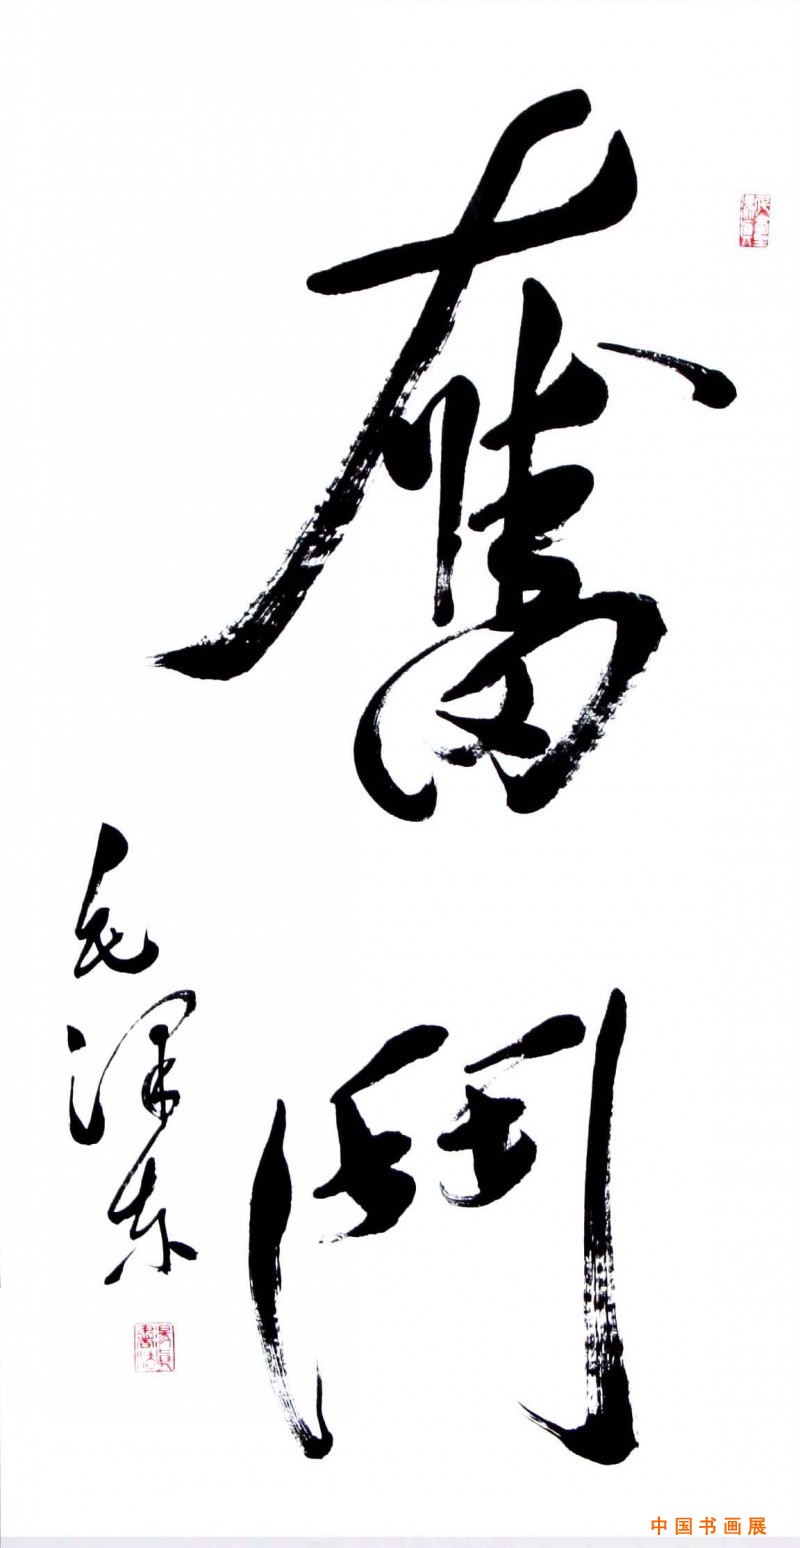 奮鬥
毛泽东
中国书画展